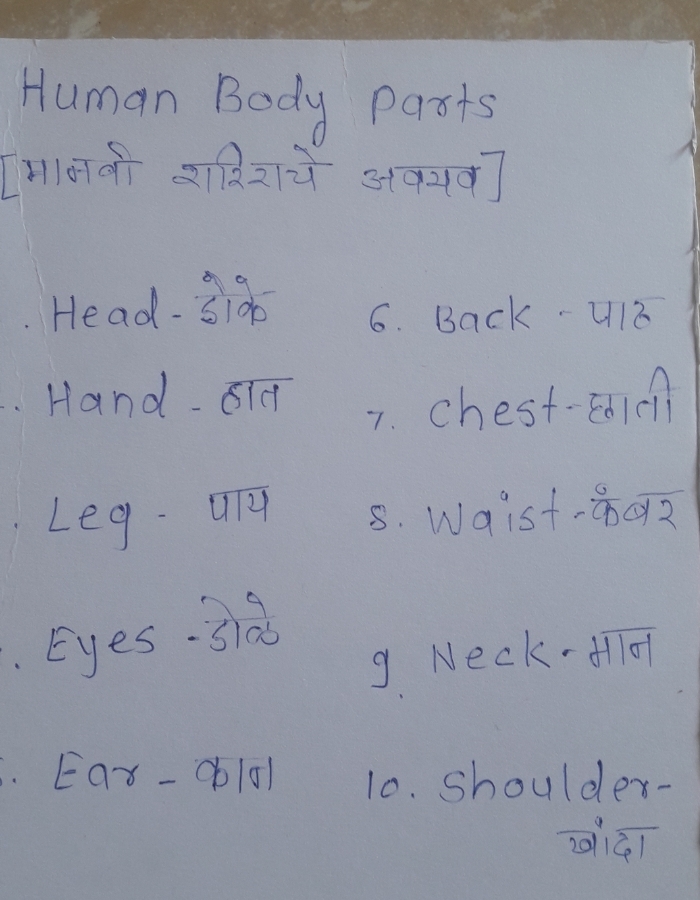 Human Body Parts
[मानवी शरिराचे अवयव]
. Head - डोके
. Hand - हात
. Leg - पाय
. Eyes - डोळे
5. Ear - कान
6. Back - पाठ
7. Chest - छाती
8. Waist - कंबर
9. Neck - मान
10. Shoulder -
खांदा